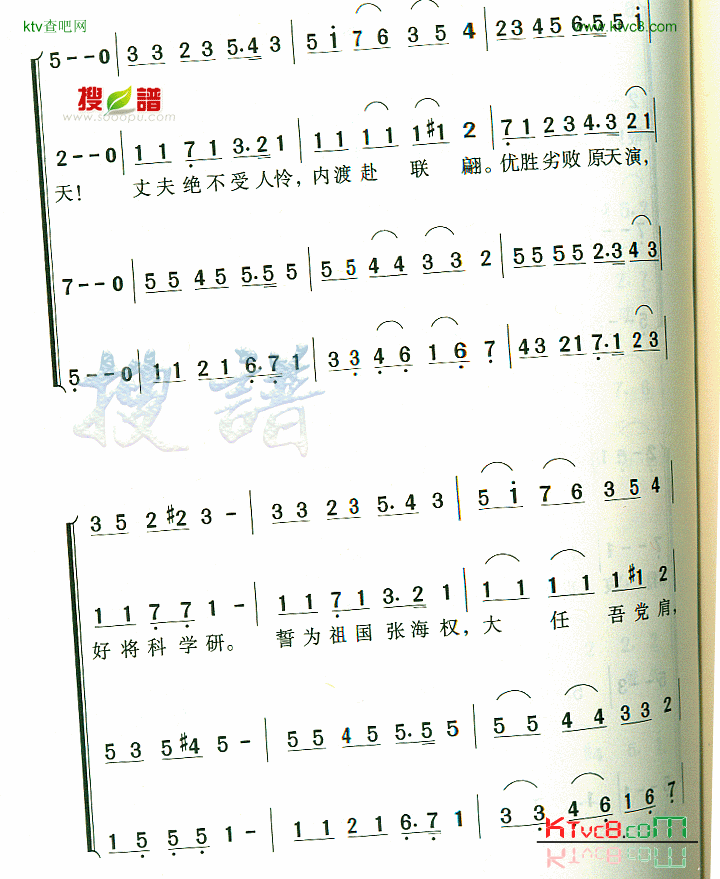 ktv查吧网
www.ktvc8.com
5 - - 0 | 3 3 2 3 5·4 3 | 5 i 7 6 3 5 4 | 2 3 4 5 6·5 5 i
搜谱
www.sooopu.com
2 - - 0 | 1 1 7 1 3·2 1 | 1 1 1 1 1 #1 2 | 7 1 2 3 4·3 2 1
天! 丈夫绝不受人怜，内渡赴联翩。优胜劣败原天演，
7 - - 0 | 5 5 4 5 5·5 5 | 5 5 4 4 3 3 2 | 5 5 5 5 2·3 4 3
5 - - 0 | 1 1 2 1 6·7 1 | 3 3 4 6 1 6 7 | 4 3 2 1 7·1 2 3
搜譜
3 5 2 #2 3 - | 3 3 2 3 5·4 3 | 5 i 7 6 3 5 4 |
1 1 7 7 1 - | 1 1 7 1 3·2 1 | 1 1 1 1 1 #1 2 |
好将科学研。 誓为祖国张海权，大任吾党肩，
5 3 5 #4 5 - | 5 5 4 5 5·5 5 | 5 5 4 4 3 3 2 |
1 5 5 5 1 - | 1 1 2 1 6·7 1 | 3 3 4 6 1 6 7
KTvc8.com